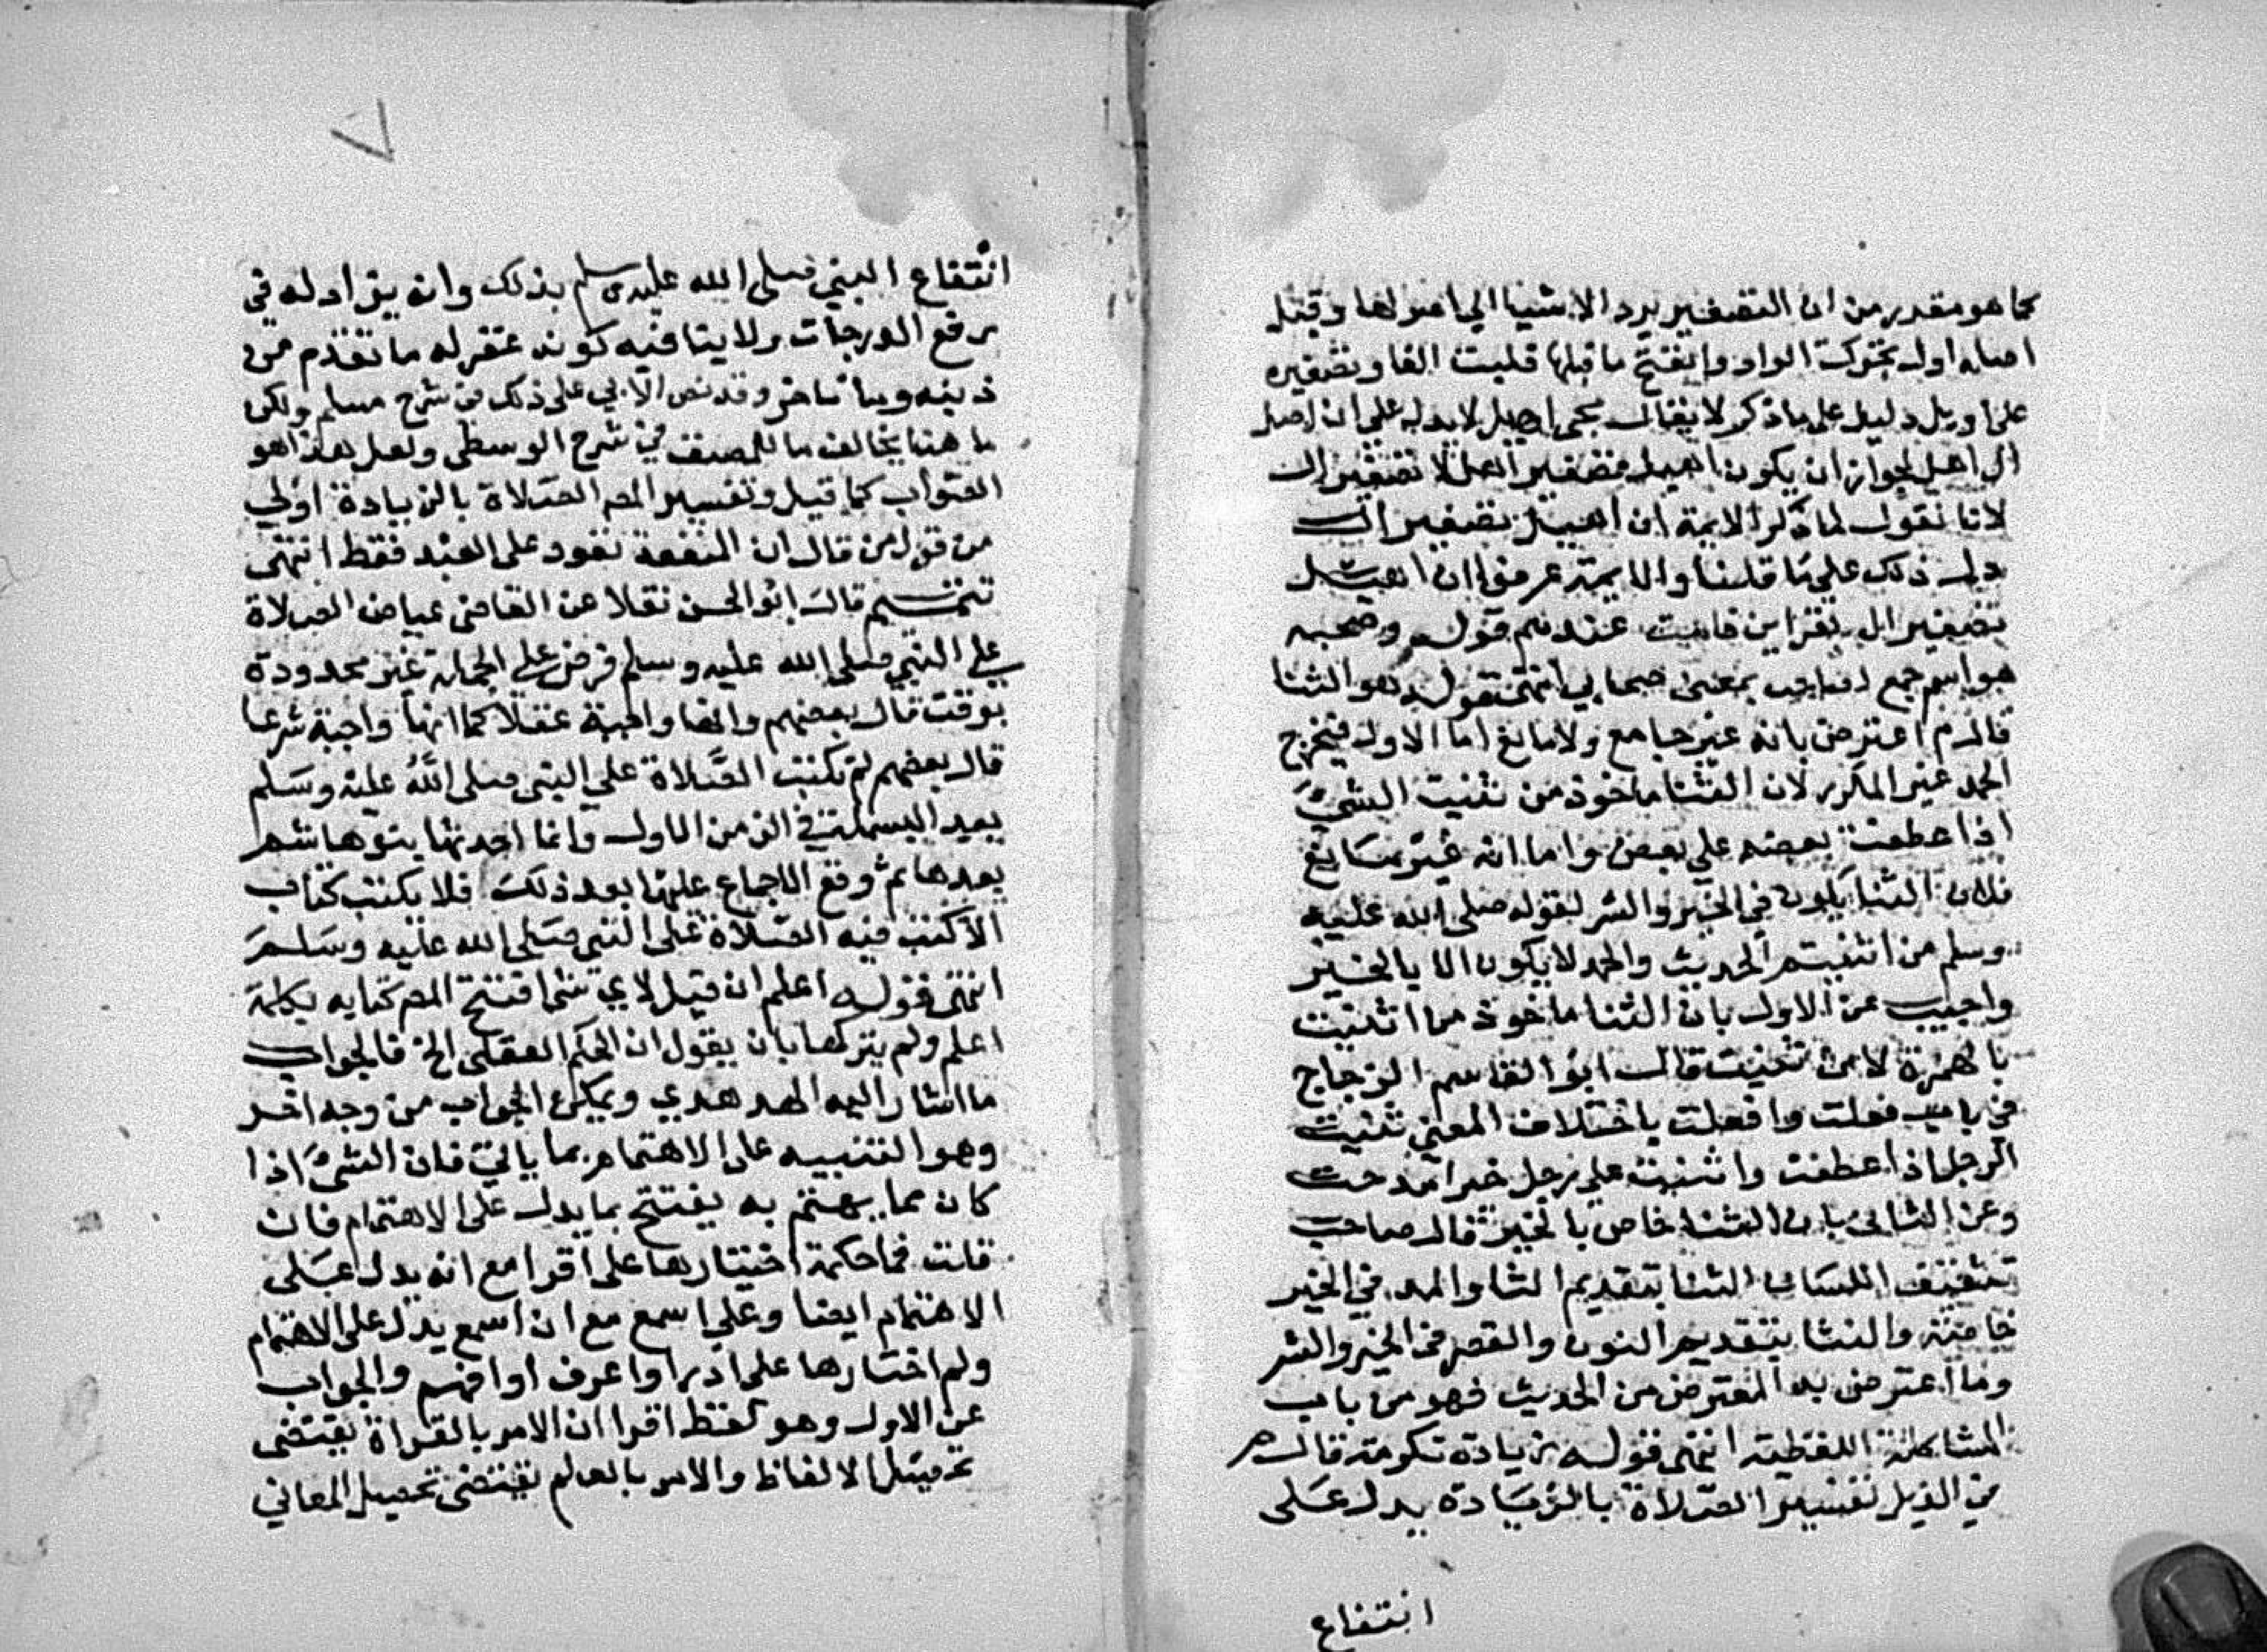 كما هو مقدر من ان التصغير يرد الاشيا الي اصولها وقيل
اصله اول تحركت الواو وانفتح ما قبلها قلبت الفا وتصغيره
على اويل دليل على ما ذكر لا يقال مجى اهيل لا يدل على ان اصل
ال اهل لجواز ان يكون اهيل تصغير اهل لا تصغير ال
لانا نقول لما ذكر الايمة ان اهيل تصغير ال
دل ذلك علي ما قلنا والايمة عرفوا ان اهيل
تصغير ال بقراين قامت عندهم قوله وصحبه
هو اسم جمع لصاحب بمعنى صحابي انتهى قوله هو الثنا
قال م اعترض بانه غير جامع ولا مانع اما الاول فيخرج
الحمد غير المكرر لان الثنا ماخوذ من ثنيت الشيئ
اذا عطفت بعضه علي بعض واما انه غير مانع
فلان الثنا يكون في الخير والشر لقوله صلى الله عليه
وسلم من اثنيتم الحديث والحمد لا يكون الا بالخير
واجيب عن الاول بان الثنا ماخوذ من اثنيت
بالهمزة لا من ثنيت قال ابو القاسم الزجاج
في باب فعلت وافعلت باختلاف المعنى ثنيت
الرجل اذا عطفت واثنيت على رجل خيرا مدحت
وعن الثانى بان الثنا خاص بالخير قال صاحب
تثقيف اللسان الثنا بتقديم الثا والمد في الخير
خاصة والنثا بتقديم النون والقصر في الخير والشر
وما اعترض به المعترض من الحديث فهو من باب
المشاكلة اللفظية انتهى قوله زيادة تكرمة قال م
في الذيل تفسير الصلاة بالزيادة يدل على
انتفاع
٧
انتفاع النبي صلى الله عليه وسلم بذلك وانه يزاد له في
رفع الدرجات ولا ينافيه كونه غفر له ما تقدم من
ذنبه وما تاخر وقد نص الابي على ذلك في شرح مسلم ولكن
ما هنا يخالف ما للمصنف في شرح الوسطى ولعل هذا هو
الصواب كما قيل وتفسير المص الصلاة بالزيادة اولي
من قول من قال ان المنفعة تعود على العبد فقط انتهى
تتميم قال ابو الحسن نقلا عن القاضى عياض الصلاة
على النبي صلى الله عليه وسلم فرض على الجملة غير محدودة
بوقت قال بعضهم وانها واجبة عقلا كما انها واجبة شرعا
قال بعضهم لم تكتب الصلاة علي النبى صلى الله عليه وسلم
بعد البسملة في الزمن الاول وانما احدثها بنو هاشم
بعدها ثم وقع الاجماع عليها بعد ذلك فلا يكتب كتاب
الا كتب فيه الصلاة على النبى صلى الله عليه وسلم
انتهى قوله اعلم ان قيل لاي شي افتتح المص كتابه بكلمة
اعلم ولم يتركها بان يقول ان الحكم العقلى الخ فالجواب
ما اشار اليه الهدهدي ويمكن الجواب من وجه اخر
وهو التنبيه على الاهتمام بما ياتي فان الشيئ اذا
كان مما يهتم به يفتتح بما يدل على الاهتمام فان
قلت فما حكمة اختيارها على اقرا مع انه يدل على
الاهتمام ايضا وعلي اسمع مع ان اسمع يدل على الاهتمام
ولم اختارها على ادرا واعرف او افهم والجواب
عن الاول وهو لفظ اقرا ان الامر بالقراة يقتضى
تحصيل الالفاظ والامر بالعلم يقتضى تحصيل المعاني